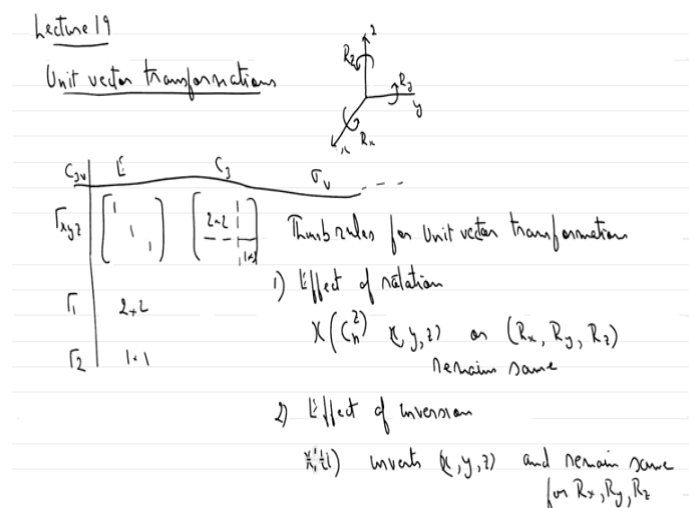 Lecture 19
Unit vector transformations
z
Rz
Ry
y
Rx
x
C3v E C3 σv ---
Γxyz [1 1 1] [2×2 1×1]
Thumb rules for Unit vector transformation
1) Effect of rotation
Γ1 2×2
χ(Cn^z) (x,y,z) or (Rx, Ry, Rz)
remain same
Γ2 1×1
2) Effect of inversion
inverts (x,y,z) and remain same
for Rx, Ry, Rz